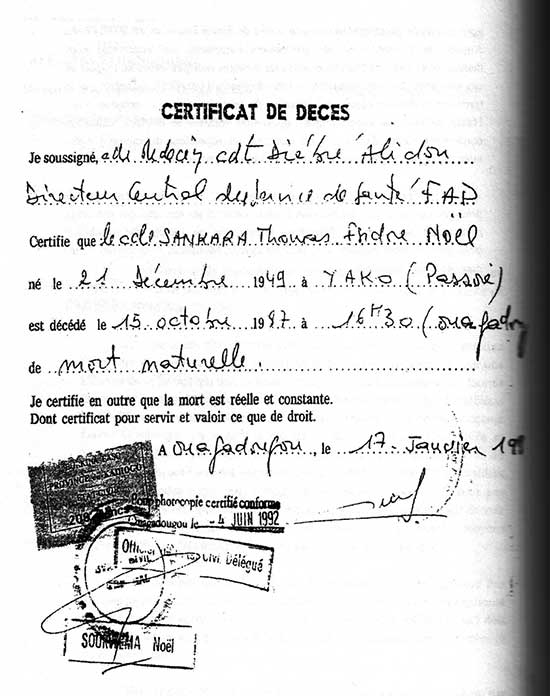 CERTIFICAT DE DECES
Je soussigné, Médecin cdt Diébré Alidou
Directeur Central des Service de Santé FAP
Certifie que le cdt SANKARA Thomas Isidore Noël
né le 21 Décembre 1949 à YAKO (Passoré)
est décédé le 15 octobre 1987 à 16H30 (ouagadou
de mort naturelle.
Je certifie en outre que la mort est réelle et constante.
Dont certificat pour servir et valoir ce que de droit.
A Ouagadougou, le 17 Janvier 198
Pour photocopie certifié conforme
Ouagadougou le - 4 JUIN 1992
Officier CIVIL Délégué
SOURWEMA Noël